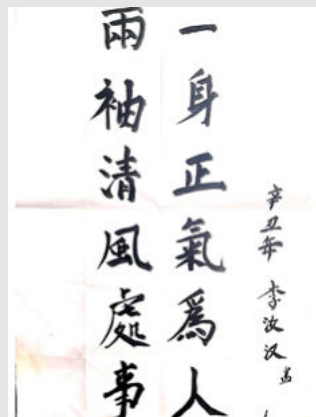 一身正氣爲人
兩袖清風處事
辛丑年 李汝汉